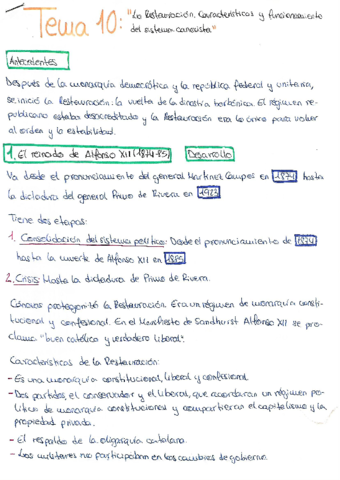 Tema 10: "La Restauración, Características y funcionamiento
del sistema canovista"
Antecedentes
Después de la monarquía democrática y la república federal y unitaria,
se inició la Restauración: la vuelta de la dinastía borbónica. El régimen re-
publicano estaba desacreditado y la Restauración era lo único para volver
al orden y la estabilidad.
1. El reinado de Alfonso XII (1874-85) Desarrollo
Va desde el pronunciamiento del general Martínez Campos en 1874 hasta
la dictadura del general Primo de Rivera en 1923
Tiene dos etapas:
1. Consolidación del sistema político: Desde el pronunciamiento de 1874
hasta la muerte de Alfonso XII en 1885
2. Crisis: Hasta la dictadura de Primo de Rivera.
Cánovas protagonizó la Restauración. Era un régimen de monarquía consti-
tucional y confesional. En el Manifiesto de Sandhurst Alfonso XII se pro-
clama "buen católico y verdadero liberal".
Características de la Restauración:
- Es una monarquía constitucional, liberal y confesional.
- Dos partidos, el conservador y el liberal, que acordaran un régimen po-
lítico de monarquía constitucional y compartieran el capitalismo y la
propiedad privada.
- El respaldo de la oligarquía catalana.
- Los militares no participaban en los cambios de gobierno.